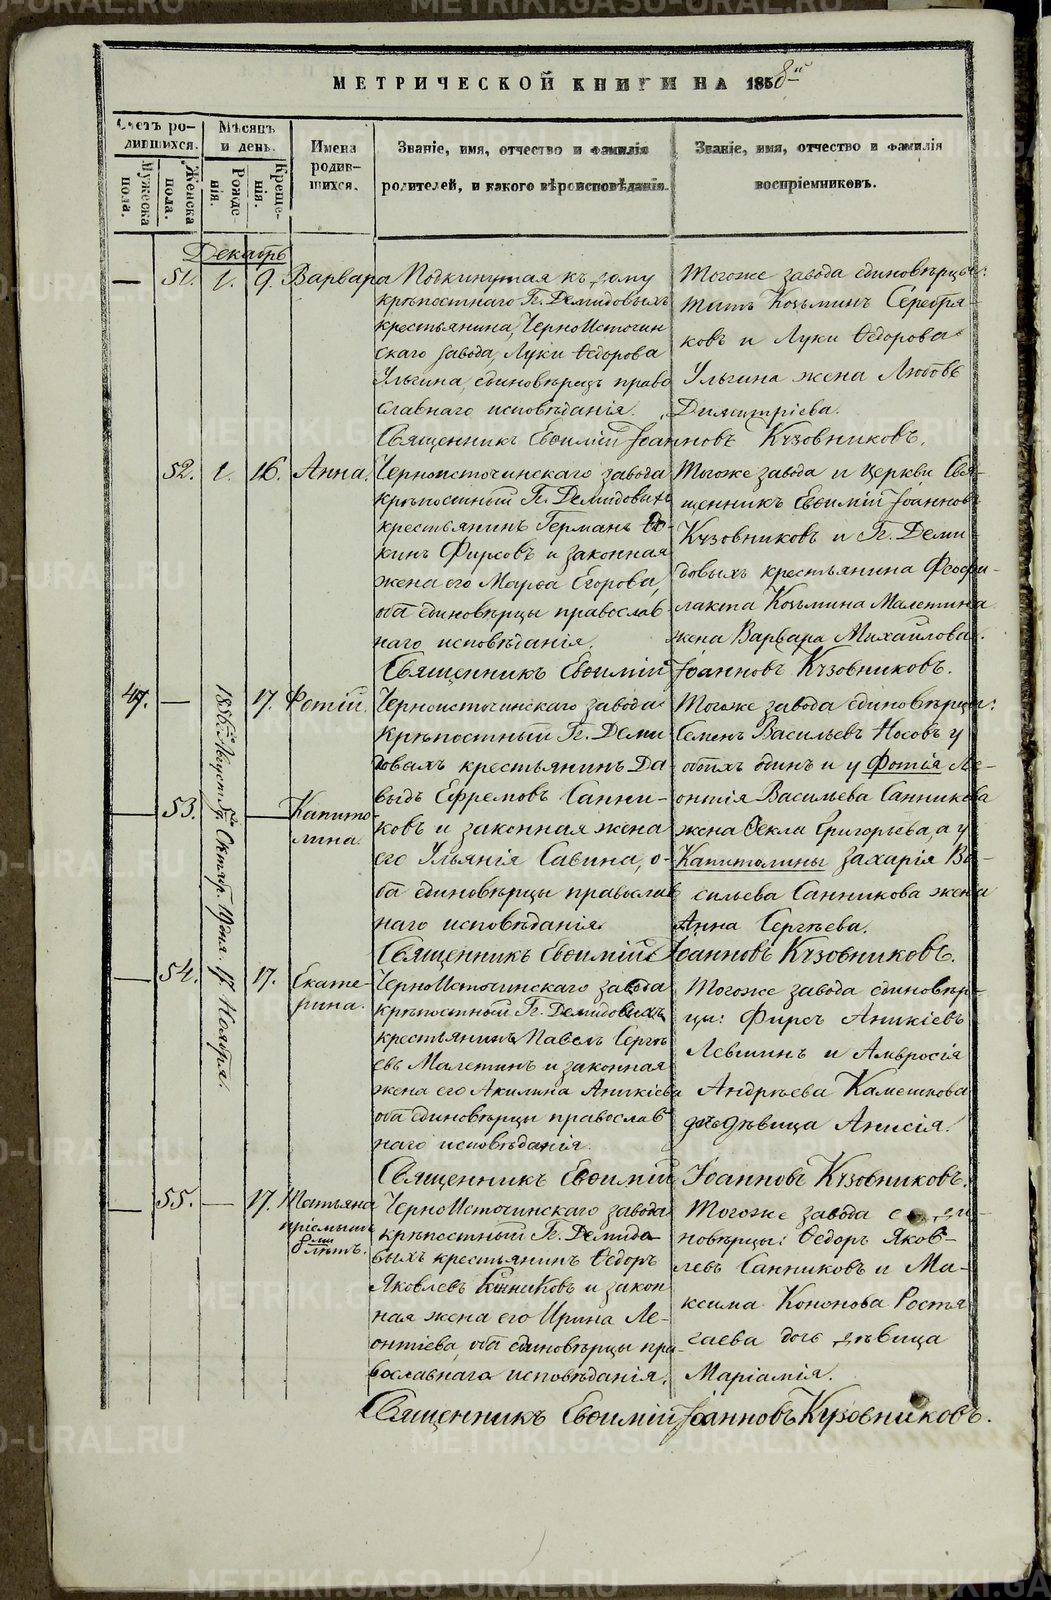 МЕТРИЧЕСКОЙ КНИГИ НА 1858й
Счетъ ро-
дившихся.
Мужеска пола.
Женска пола.
Мѣсяцъ
и день.
Рожде-
нія.
Креще-
нія.
Имена
родив-
шихся.
Званіе, имя, отчество и фамилія
родителей, и какого вѣроисповѣданія.
Званіе, имя, отчество и фамилія
воспріемниковъ.
Декабрь
— 51. 1. 9. Варвара
Подкинутая къ дому
крѣпостнаго Гг. Демидовыхъ
крестьянина, Черноисточин
скаго завода, Луки Ѳедорова
Ульгина, единовѣрецъ право
славнаго исповѣданія.
Тогоже завода единовѣрцы:
Титъ Козьминъ Серебря-
ковъ и Луки Ѳедорова
Ульгина жена Любовь
Димитріева.
Священникъ Евѳимій Іоанновъ Кузовниковъ.
52. 1. 16. Анна.
Черноисточинскаго завода
крѣпостный Гг. Демидовыхъ
крестьянинъ Германъ
кинъ Фирсовъ и законная
жена его Марѳа Егорова,
оба единовѣрцы православ
наго исповѣданія.
Тогоже завода и церкви Свя-
щенникъ Евѳимій Іоанновъ
Кузовниковъ и Гг. Деми-
довыхъ крестьянина Феофи-
лакта Козьмина Малетина
жена Варвара Михайлова.
Священникъ Евѳимій Іоанновъ Кузовниковъ.
47. — 17. Фотій.
53. — Капито
лина.
Октяб. 17. Ноября.
Черноисточинскаго завода
крѣпостный Гг. Деми
довыхъ крестьянинъ Да
выдъ Ефремовъ Санни-
ковъ и законная жена
его Ульянія Савина, о-
ба единовѣрцы православ
наго исповѣданія.
Тогоже завода единовѣрцы:
Семенъ Васильевъ Носовъ у
обоихъ одинъ и у Фотія Ле-
онтія Васильева Санникова
жена Ѳекла Григорьева, а у
Капитолины Захарія Ва-
сильева Санникова жена
Анна Сергѣева.
Священникъ Евѳимій Іоанновъ Кузовниковъ.
— 54. 17. Екате-
рина.
Черноисточинскаго завода
крѣпостный Гг. Демидовыхъ
крестьянинъ Павелъ Сергѣ
евъ Малетинъ и законная
жена его Акилина Аникіева
оба единовѣрцы православ
наго исповѣданія.
Тогоже завода единовѣр-
цы: Фирсъ Аникіевъ
Левшинъ и Амвросія
Андрѣева Камешкова
дочь дѣвица Анисія.
Священникъ Евѳимій Іоанновъ Кузовниковъ.
— 55. — 17. Татьяна
пріемышъ
8ми лѣтъ.
Черноисточинскаго завода
крѣпостный Гг. Демидо
выхъ крестьянинъ Ѳедоръ
Яковлевъ и закон
ная жена его Ирина Ле-
онтіева, оба единовѣрцы пра-
вославнаго исповѣданія.
Тогоже завода еди-
новѣрцы: Ѳедоръ Яков-
левъ Санниковъ и Ма-
ксима Кононова Ростя
гаева дочь дѣвица
Маріамія.
Священникъ Евѳимій Іоанновъ Кузовниковъ.
METRIKI.GASO-URAL.RU